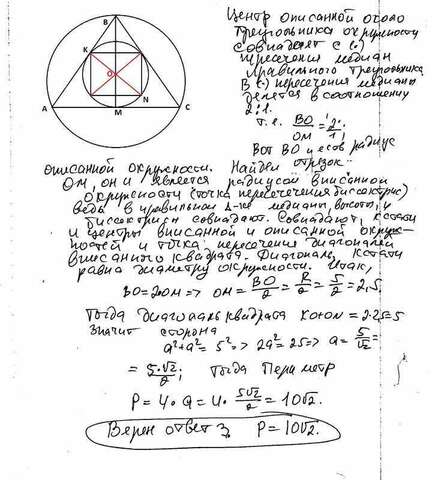 B
K
O
A
M
N
C
Центр описанной около
треугольника окружности
совпадает с (·)
пересечения медиан
правильного треугольника
В (·) пересечения медианы
делятся в соотношении
2:1
т.е. BO/OM = 2/1;
Вот BO и есть радиус
описанной окружности. Найдем отрезок
OM, он и является радиусом вписанной
окружности (точка пересечения биссектрис)
ведь в правильном Δ-ке медианы, высоты и
биссектрисы совпадают. Совпадают, кстати
и центры вписанной и описанной окруж-
ностей и точка пересечение диагоналей
вписанного квадрата. Диагональ, кстати
равна диаметру окружности. Итак,
BO=2OM => OM = BO/2 = R/2 = 5/2 = 2,5.
Тогда диагональ квадрата KO+ON = 2·2,5=5
Значит сторона
a²+a² = 5² => 2a² = 25 => a = 5/√2 =
= 5·√2/2; Тогда Периметр
P = 4·a = 4· 5√2/2 = 10√2.
Верен ответ 3. P = 10√2.